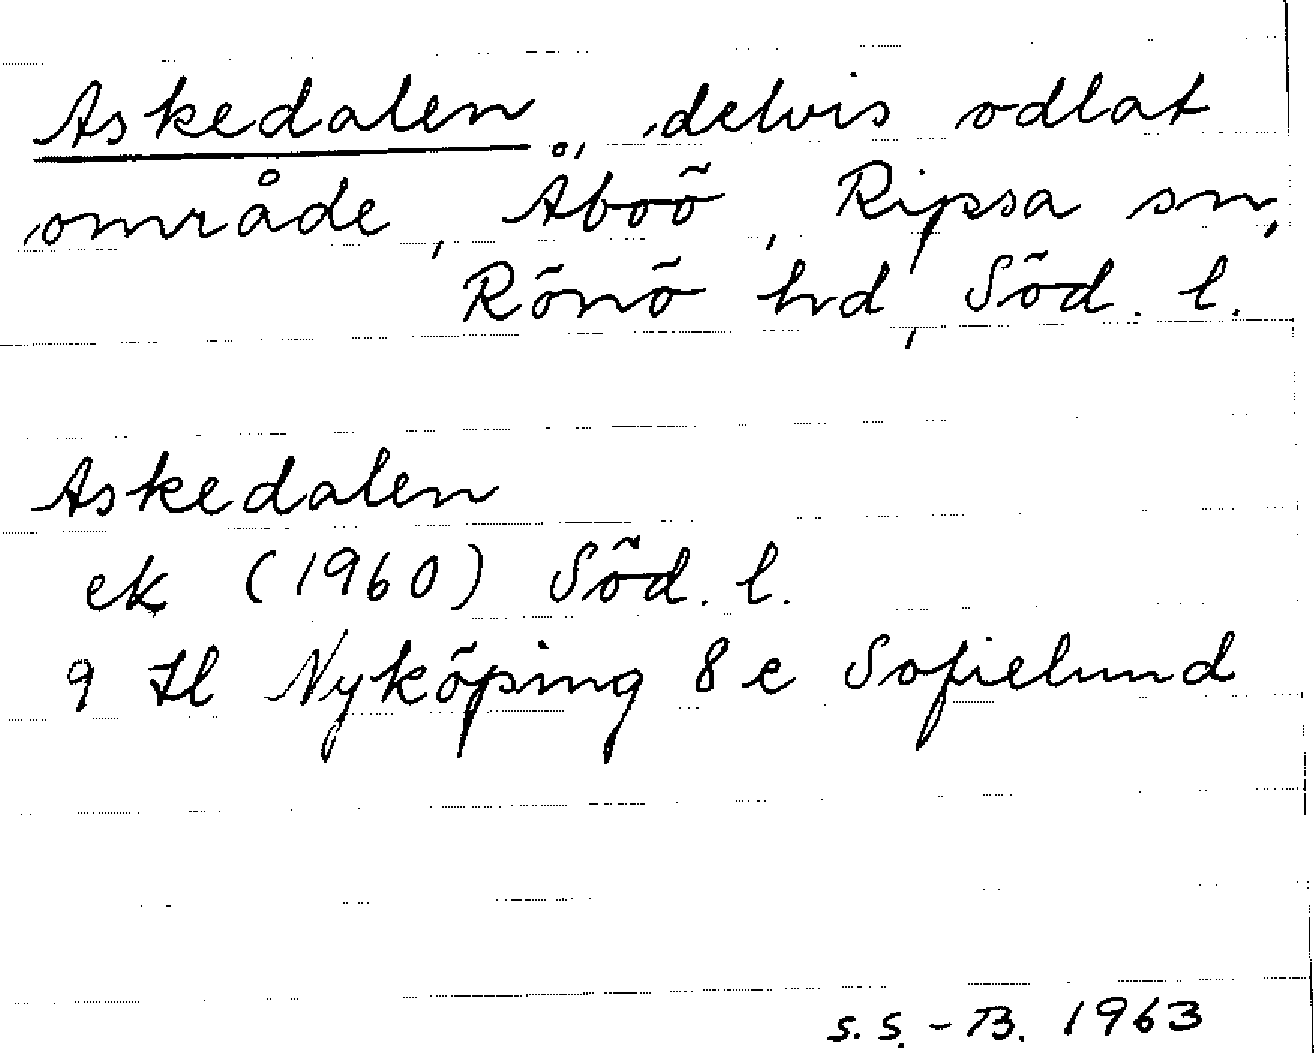 Askedalen, delvis odlat
område, Åboö, Ripsa sn,
Rönö hd, Söd. l.
Askedalen
ek (1960) Söd. l.
9 H Nyköping 8 e Sofielund
S.S.-B. 1963